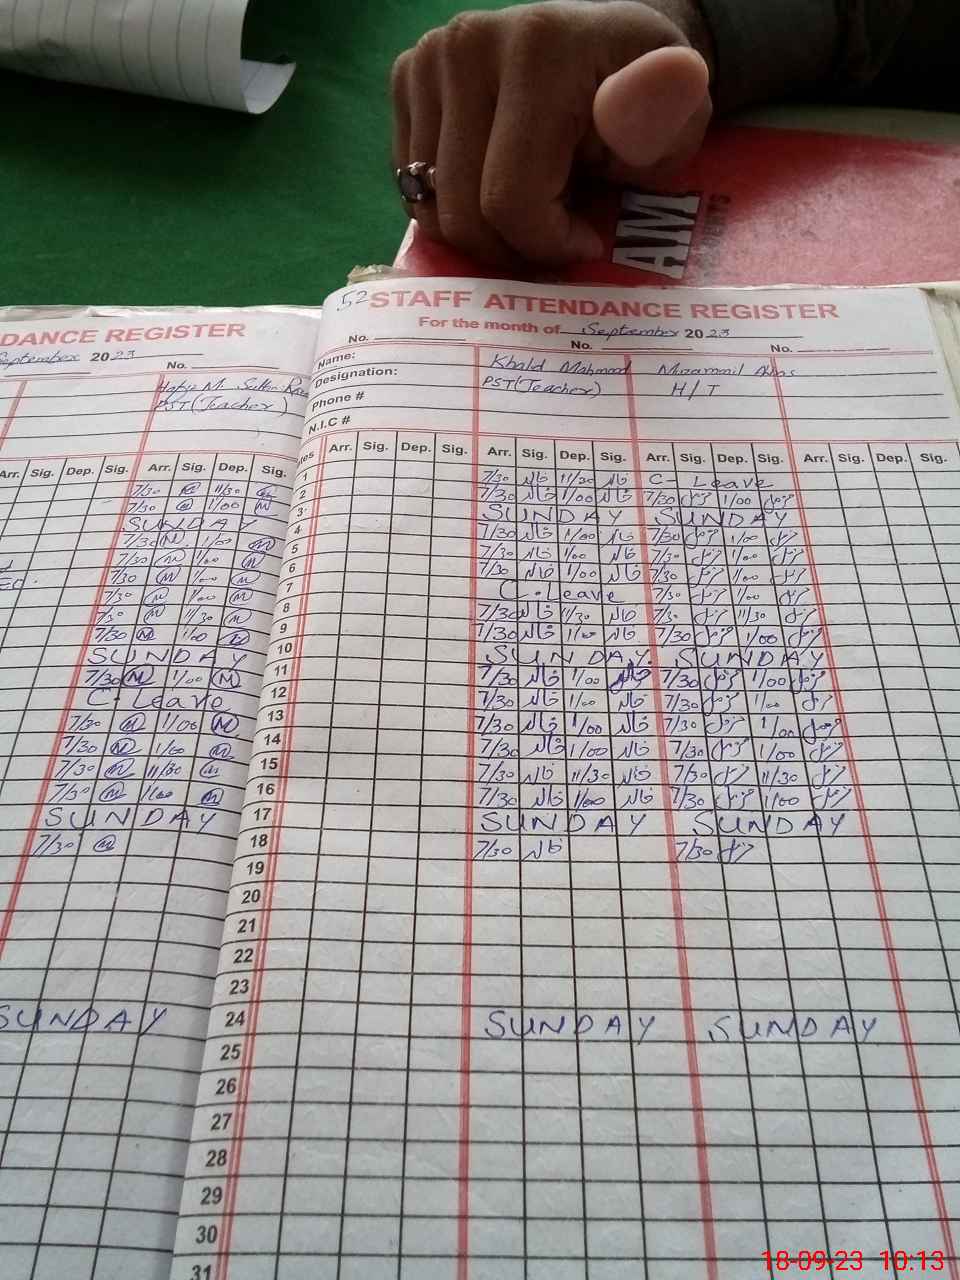 AM
52 STAFF ATTENDANCE REGISTER
For the month of September 2023
No. No. No.
Name: Khalid Mahmood
Designation: PST(Teacher) H/T
Phone #
N.I.C #
Arr. Sig. Dep. Sig. Arr. Sig. Dep. Sig. Arr. Sig. Dep. Sig. Arr. Sig. Dep. Sig.
1 7/30 خالد 11/30 خالد C- Leave
2 7/30 خالد 1/00 خالد 7/30 مزمل 1/00 مزمل
3 SUNDAY SUNDAY
4 7/30 خالد 1/00 خالد 7/30 مزمل 1/00 مزمل
5 7/30 خالد 1/00 خالد 7/30 مزمل 1/00 مزمل
6 7/30 خالد 1/00 خالد 7/30 مزمل 1/00 مزمل
7 C-Leave 7/30 مزمل 1/00 مزمل
8 7/30 خالد 11/30 خالد 7/30 مزمل 11/30 مزمل
9 7/30 خالد 1/00 خالد 7/30 مزمل 1/00 مزمل
10 SUNDAY SUNDAY
11 7/30 خالد 1/00 خالد 7/30 مزمل 1/00 مزمل
12 7/30 خالد 1/00 خالد 7/30 مزمل 1/00 مزمل
13 7/30 خالد 1/00 خالد 7/30 مزمل 1/00 مزمل
14 7/30 خالد 1/00 خالد 7/30 مزمل 1/00 مزمل
15 7/30 خالد 11/30 خالد 7/30 مزمل 11/30 مزمل
16 7/30 خالد 1/00 خالد 7/30 مزمل 1/00 مزمل
17 SUNDAY SUNDAY
18 7/30 خالد 7/30 مزمل
19
20
21
22
23
24 SUNDAY SUNDAY
25
26
27
28
29
30
31
DANCE REGISTER
September 2023
No.
PST(Teacher)
Arr. Sig. Dep. Sig. Arr. Sig. Dep. Sig.
7/30 11/30
7/30 1/00
SUNDAY
7/30 M 1/00 M
7/30 M 1/00 M
7/30 M 1/00 M
7/30 M 1/00 M
7/30 M 11/30 M
7/30 M 1/00 M
SUNDAY
7/30 M 1/00 M
C- Leave
7/30 M 1/00 M
7/30 M 1/00 M
7/30 M 11/30 M
7/30 M 1/00 M
SUNDAY
7/30 M
SUNDAY
18-09-23 10:13